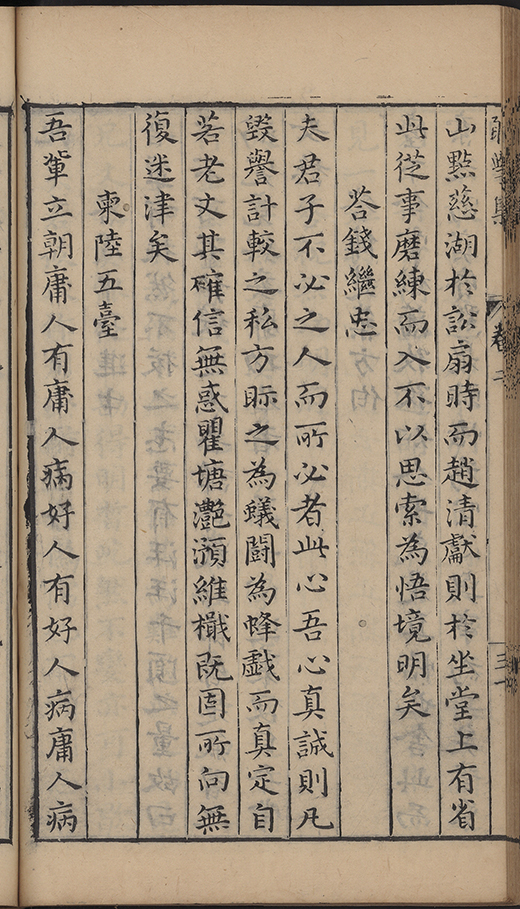 山點慈湖於訟扇時而趙清獻則於坐堂上有省
此從事磨練而入不以思索為悟境明矣
答錢繼忠
夫君子不必之人而所必者此心吾心真誠則凡
毀譽計較之私方眎之為蟻鬪為蜂戯而真定自
若老丈其確信無惑瞿塘灔澦維檝既固所向無
復迷津矣
柬陸五臺
吾軰立朝庸人有庸人病好人有好人病庸人病